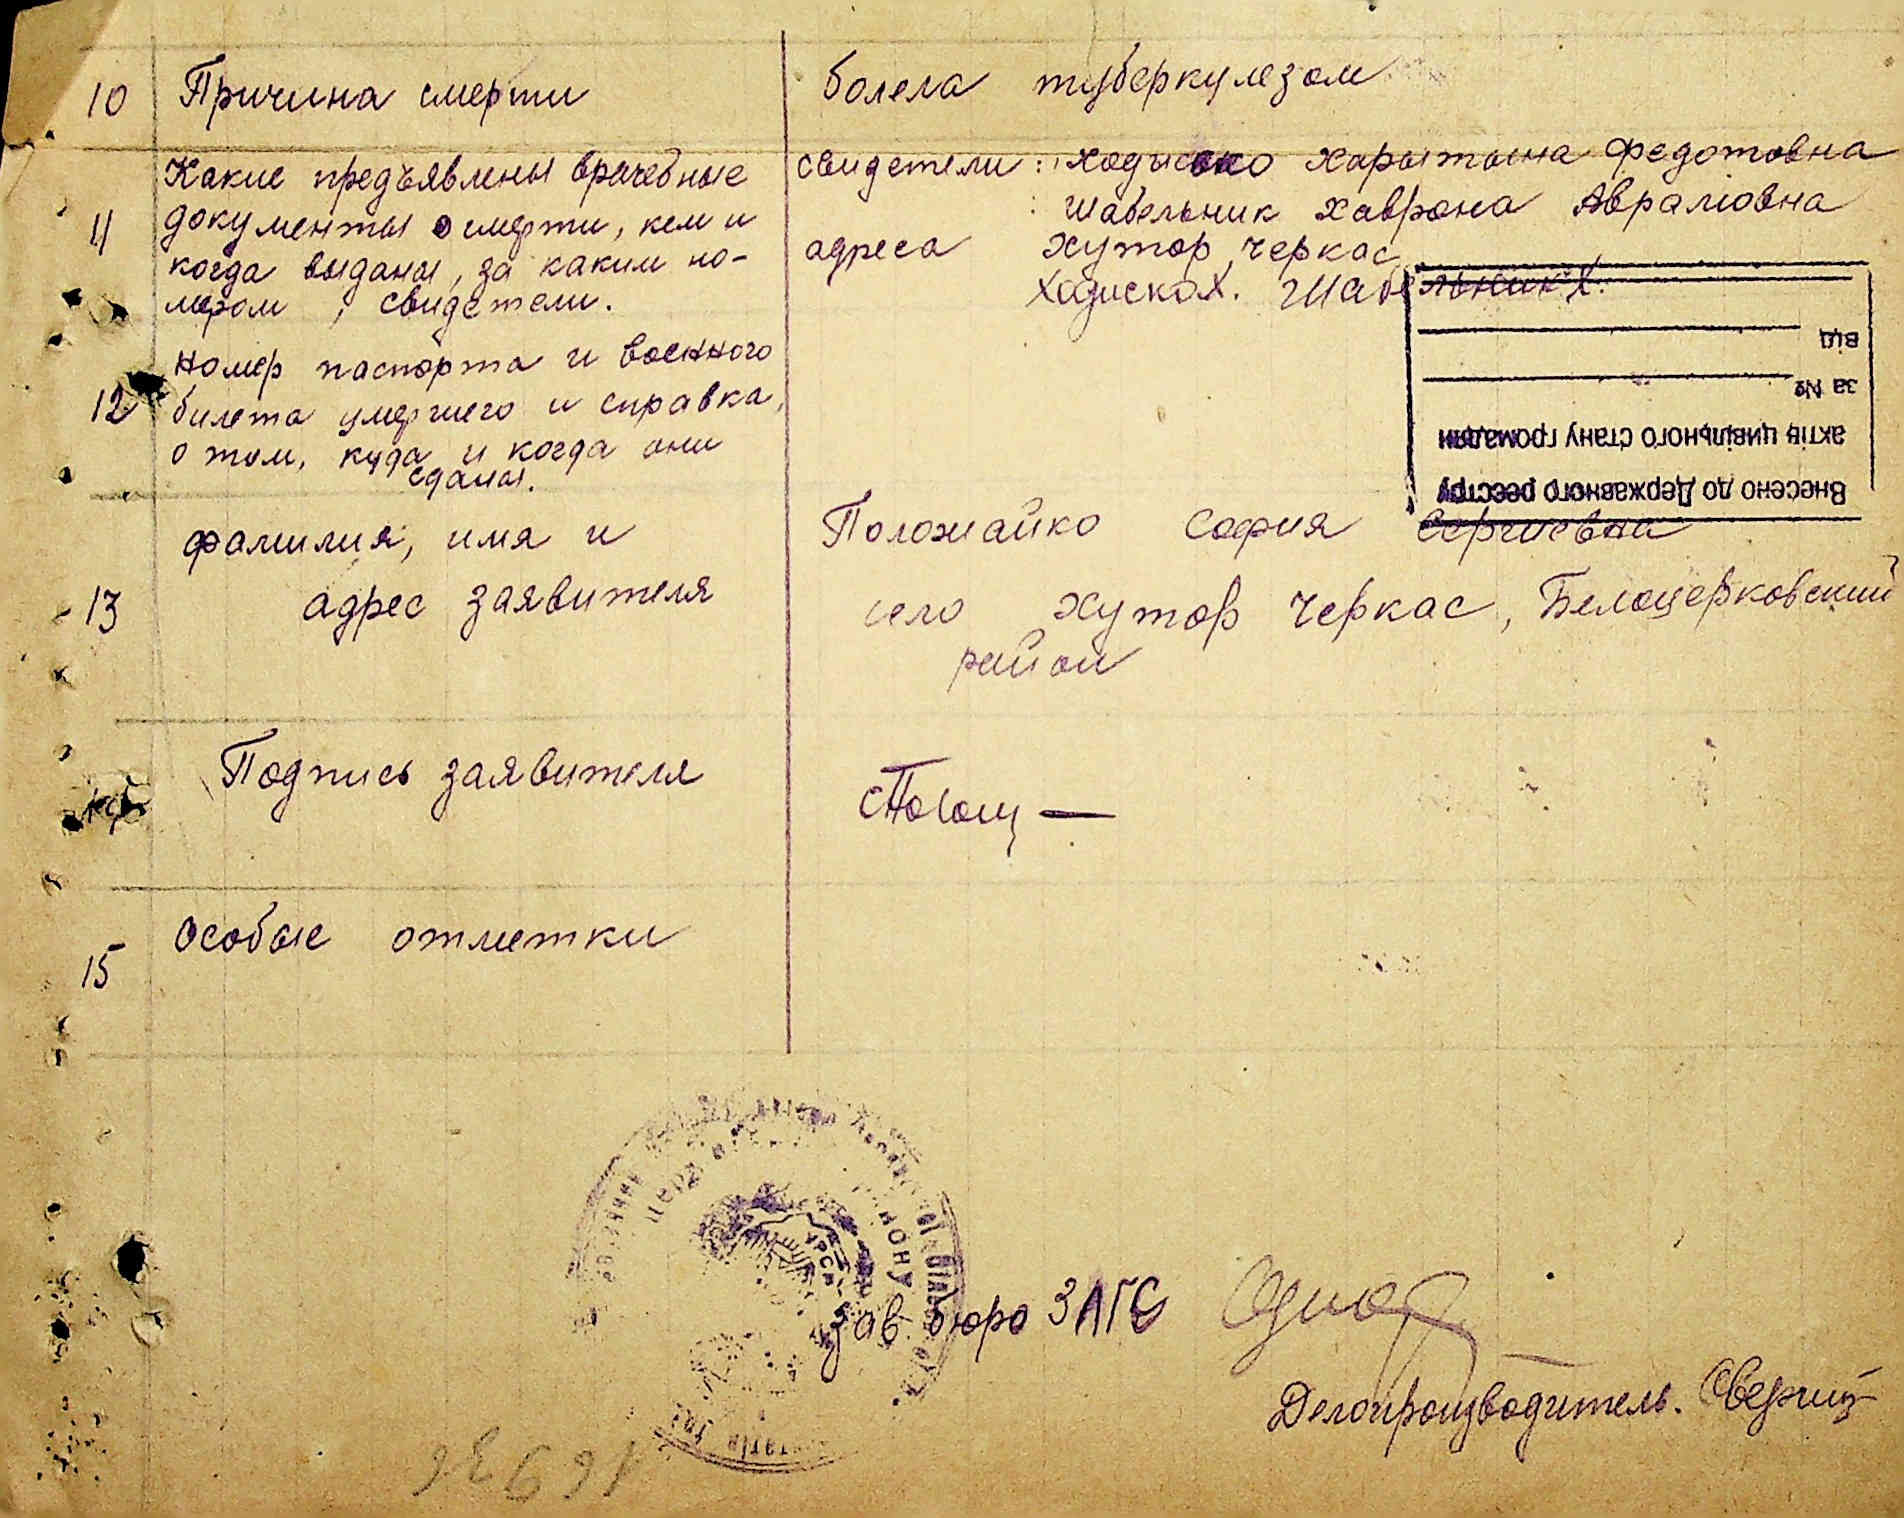 10 Причина смерти болела туберкулезом
Какие предъявлены врачебные
11 документы о смерти, кем и
когда выданы, за каким но-
мером, свидетели.
свидетели: Харытына Федотовна
: Шабельник Хаврона Аврамовна
адреса хутор Черкас
Ходиско Х. Шабельник Х.
Номер паспорта и военного
12 билета умершего и справка,
о том, куда и когда они
сданы.
від
за №
актів цивільного стану громадян
Внесено до Державного реєстру
фамилия, имя и
13 адрес заявителя
Положайко София Сергиевна
село Хутор Черкас, Белоцерковский
район
Подпись заявителя
15 Особые отметки
УРСР
Зав. бюро ЗАГС
Делопроизводитель.